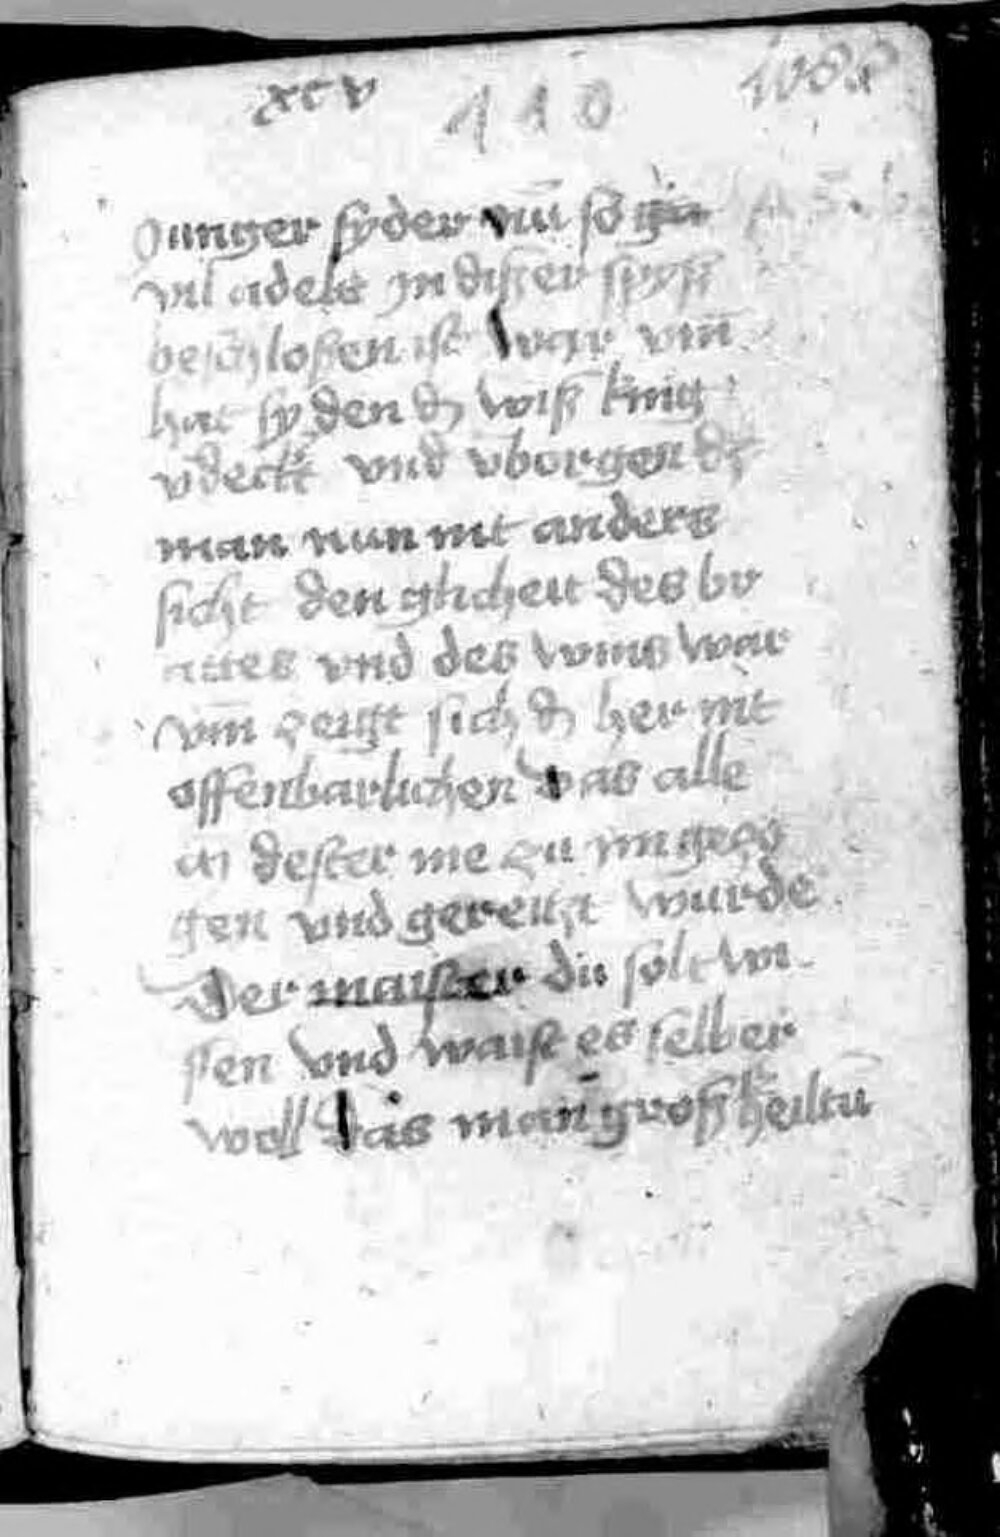 xcv 110 108a
Junger syder nū so gar
vil adels jn diser spyß
beschloßen ist war vm̄
hat sy den d' wiß king
v̄deckt vnd v̄borgen dz
man nun nit anders
sicht den glicheit des br
attes vnd des wins war
vm̄ zeigt sich d' her nit
offenbarlichen das alle
dester me zu im gezo
gen vnd gereitzt wurde
Der maister du solt wi
ssen vnd waist es selber
woll das man groß heiltū